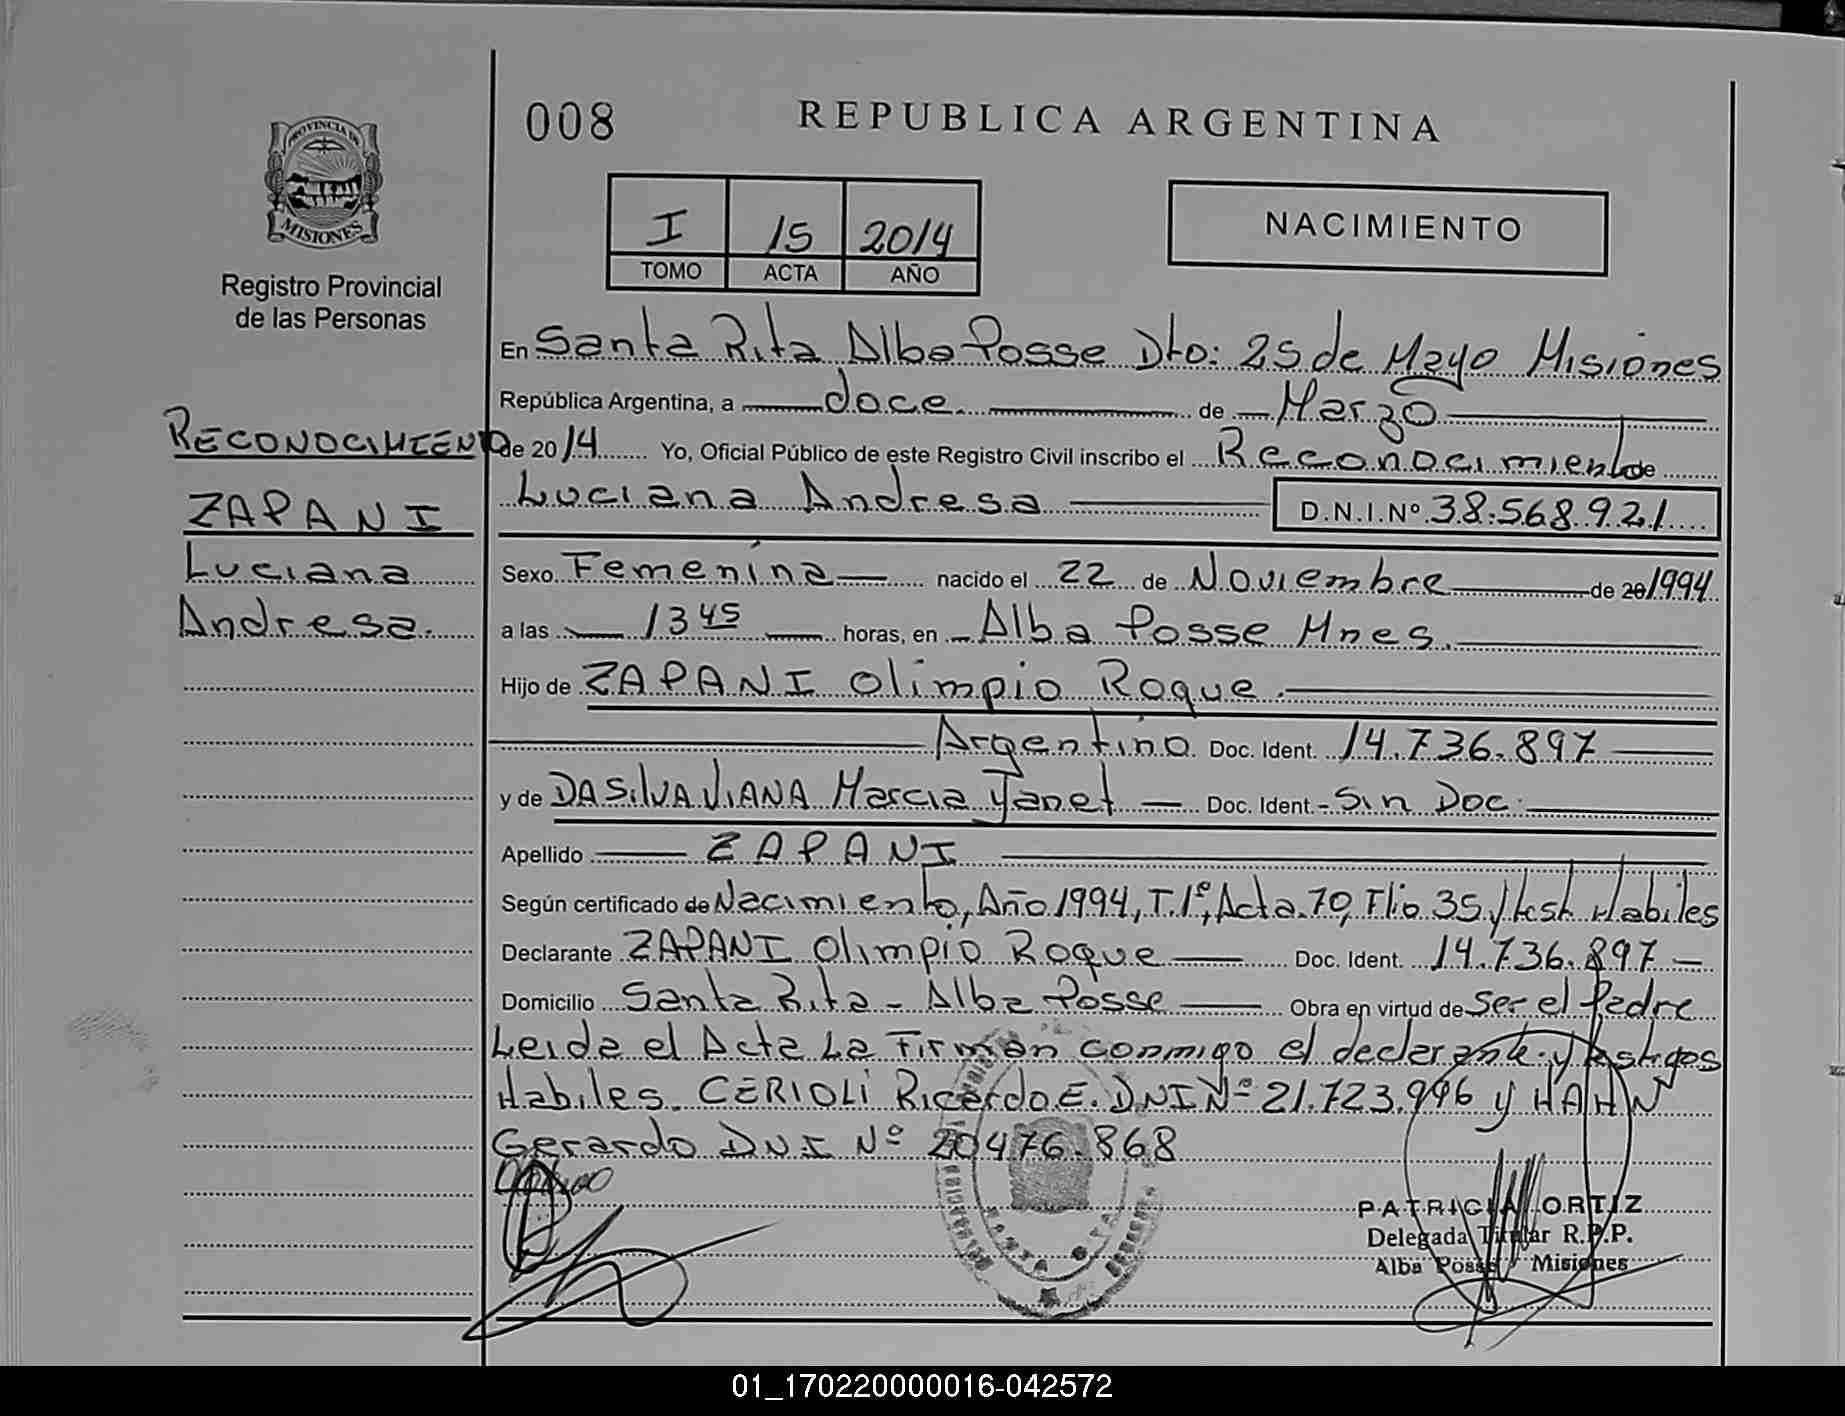 008
REPUBLICA ARGENTINA
PROVINCIA DE
MISIONES
I 15 2014
TOMO ACTA AÑO
NACIMIENTO
Registro Provincial
de las Personas
En Santa Rita Alba Posse Dto: 25 de Mayo Misiones
República Argentina, a doce de Marzo
RECONOCIMIENTO
de 2014 Yo, Oficial Público de este Registro Civil inscribo el Reconocimiento de
Luciana Andresa D.N.I.Nº 38.568.921
ZAPANI
Luciana
Andresa.
Sexo Femenina nacido el 22 de Noviembre de 20 1994
a las 13 45 horas, en Alba Posse Mnes.
Hijo de ZAPANI Olimpio Roque
Argentino Doc. Ident. 14.736.897
y de DASilVA VIANA Marcia Yanet Doc. Ident. Sin Doc.
Apellido ZAPANI
Según certificado de Nacimiento, Año 1994, T.1º, Acta 70, Flio 35 y test. Habiles
Declarante ZAPANI Olimpio Roque Doc. Ident. 14.736.897
Domicilio Santa Rita - Alba Posse Obra en virtud de Ser el Padre
Leida el Acta La Firman conmigo el declarante y testigos
Habiles. CERIOLI Ricardo E. DNI Nº 21.723.996 y HAHN
Gerardo DNI Nº 20476.868
SANTA RITA
PATRICIA ORTIZ
Delegada Titular R.P.P.
Alba Posse Misiones
01_170220000016-042572